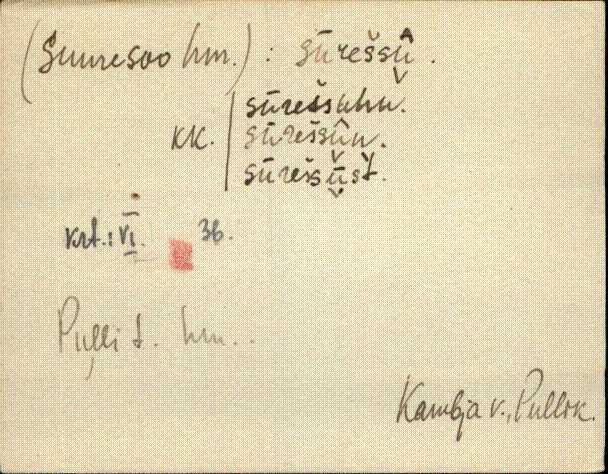 (Suuresoo hm.) : sūrešsū̬̂.
sūrešsuhu.
kk. sūrešsûn.
sūrešsū̬̌st̆.
krt.: VI. 36.
Pulli t. hm..
Kambja v., Pullik.